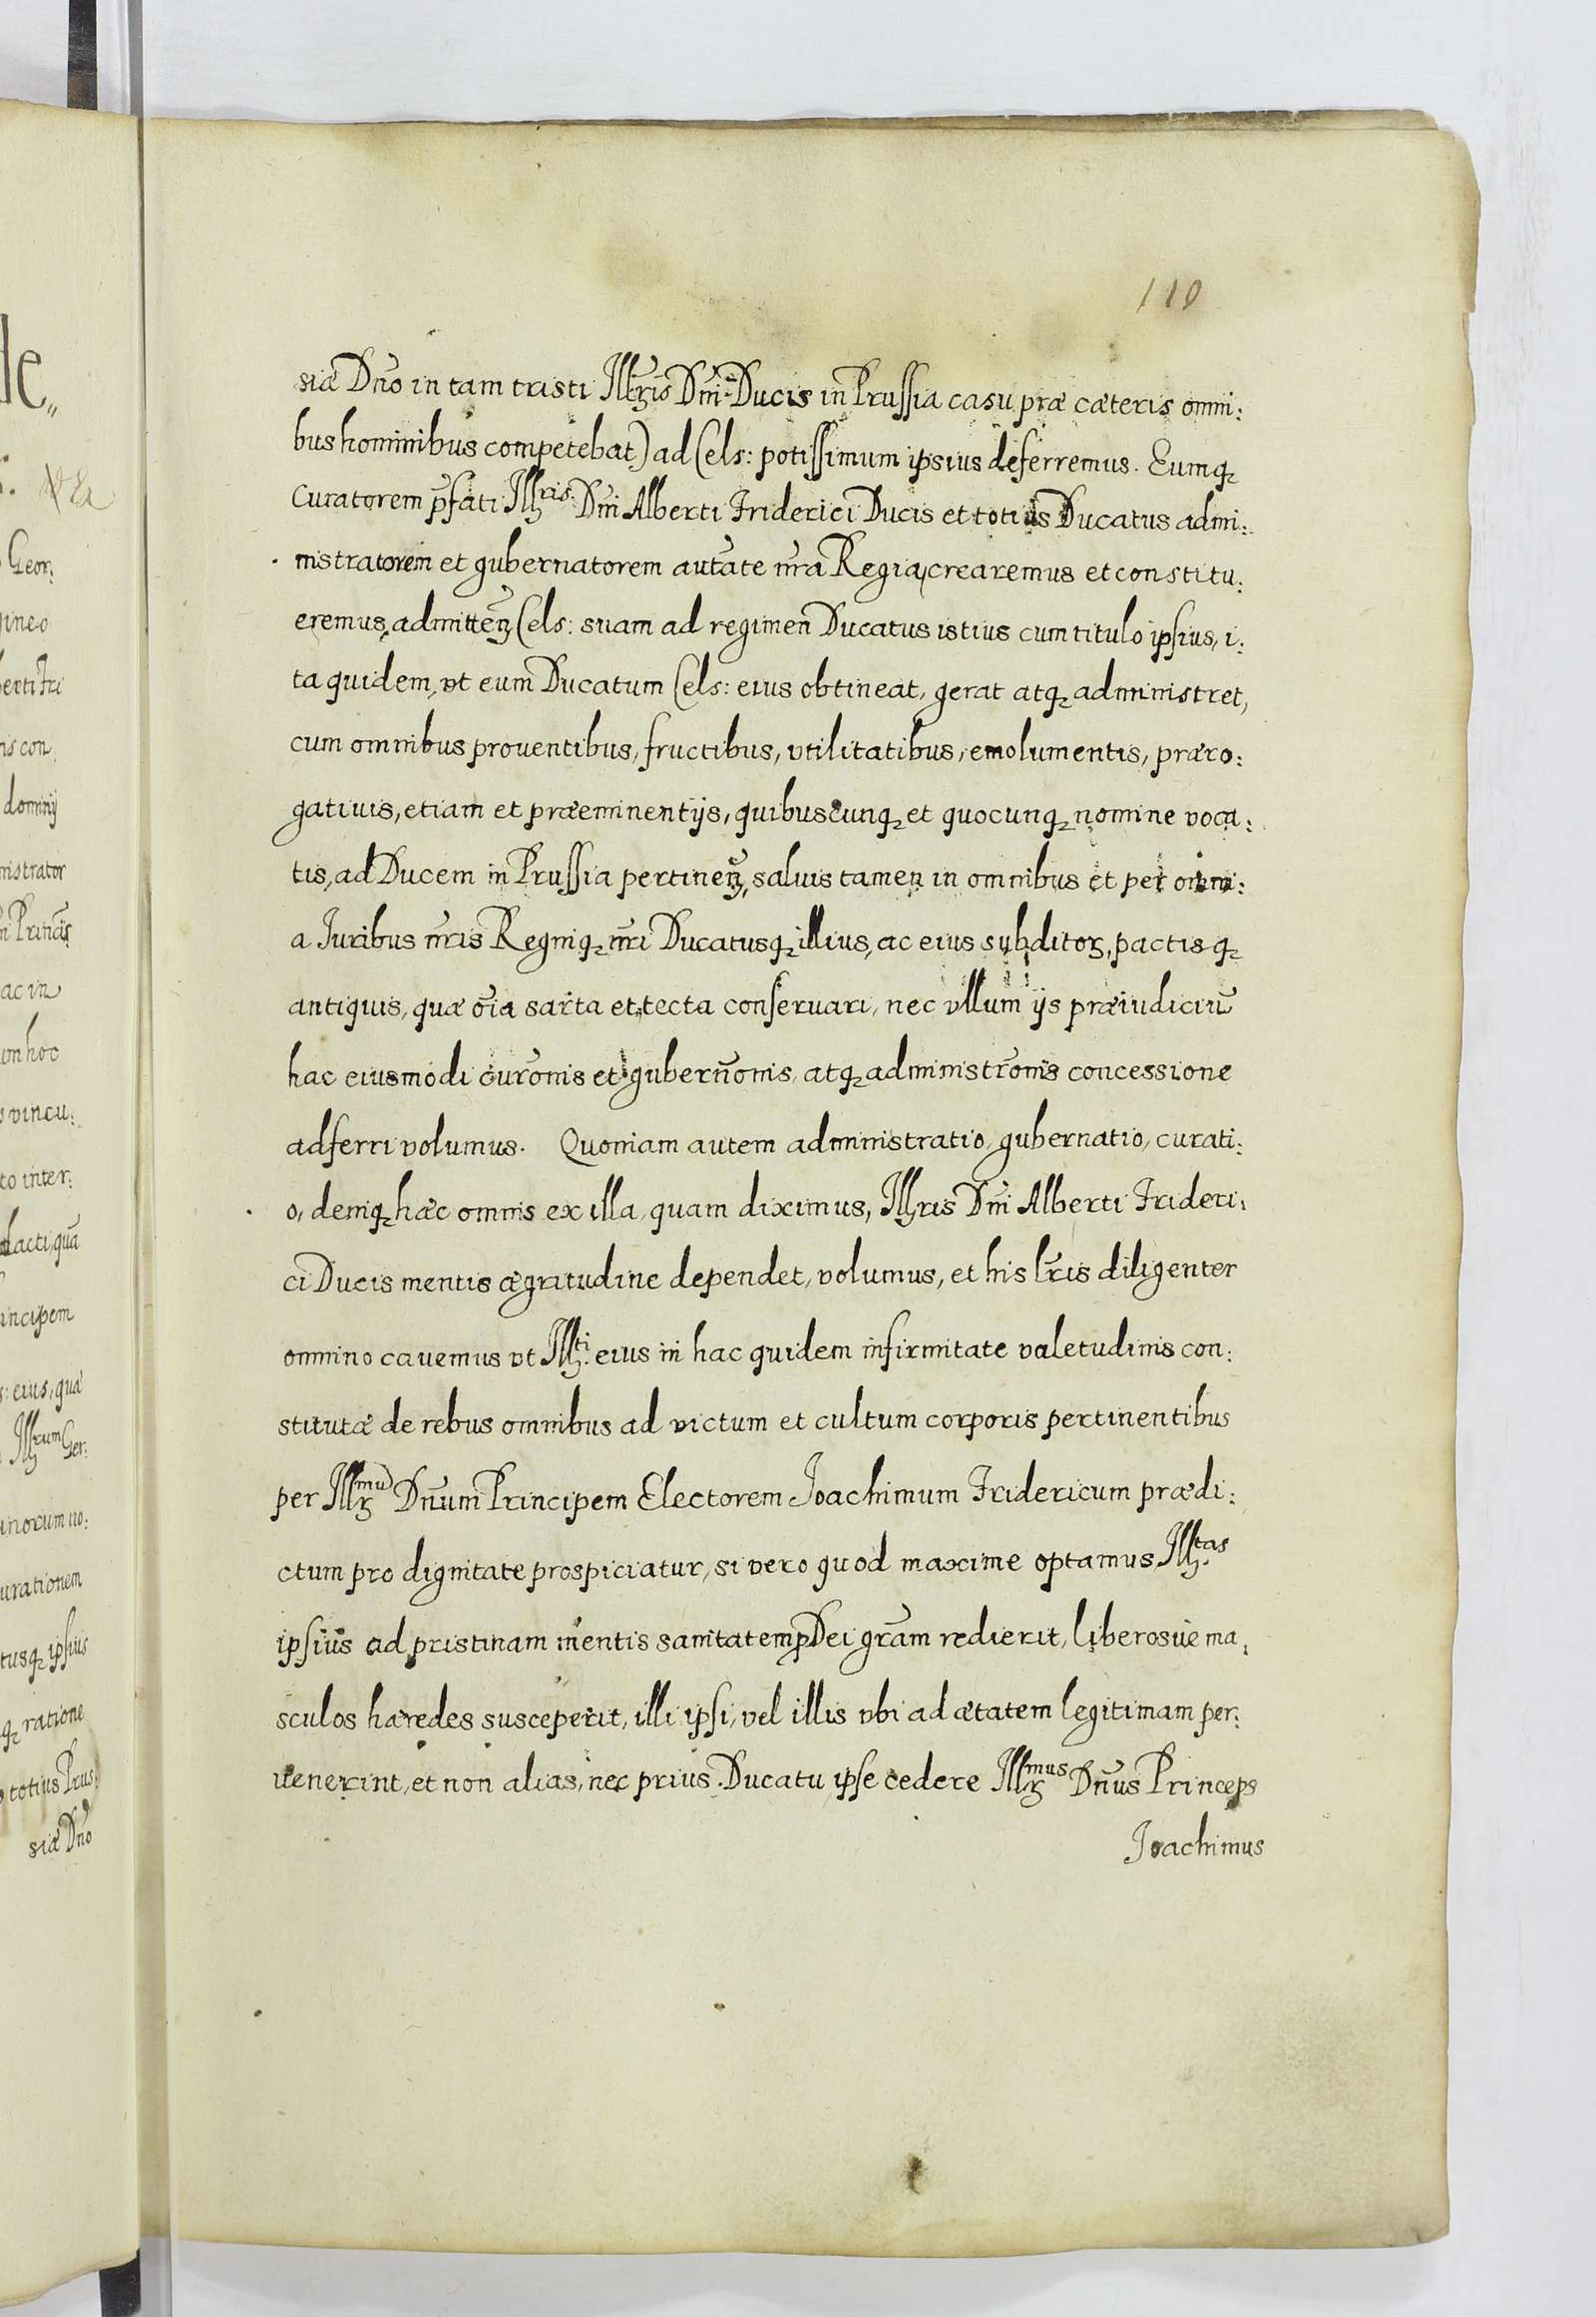 110
siæ Dño in tam tristi Illr̃is Dñi Ducis in Prussia casu præ cæteris omni:
bus hominibus competebat) ad Cels: potissimum ipsius deferremus. Eumq₃
Curatorem p̃fati Illris Dñi Alberti Friderici Ducis et totius Ducatus admi:
nistratorem et gubernatorem autãte nr̃a Regia, crearemus et constitu:
eremus, admitteñ Cels: suam ad regimen Ducatus istius cum titulo ipsius, i:
ta quidem, vt eum Ducatum Cels: eius obtineat, gerat atq₃ administret,
cum omnibus prouentibus, fructibus, vtilitatibus, emolumentis, præro:
gatiuis, etiam et præeminentijs, quibuscunq₃ et quocunq₃ nomine voca:
tis, ad Ducem in Prussia pertineñ, saluis tamen in omnibus et per omni:
a Juribus nr̃is Regniq₃ nr̃i Ducatusq₃ illius, ac eius subditoꝝ, pactisq₃
antiquis, quæ oĩa sarta et tecta conseruari, nec vllum ijs præiudiciũ
hac eiusmodi curõnis et gubernõnis, atq₃ administrõnis concessione
adferri volumus. Quoniam autem administratio, gubernatio, curati:
o, deniq₃ hæc omnis ex illa, quam diximus, Illris Dñi Alberti Frideri:
ci Ducis mentis ægritudine dependet, volumus, et his lr̃is diligenter
omnino cauemus vt Illti. eius in hac quidem infirmitate valetudinis con:
stitutæ de rebus omnibus ad victum et cultum corporis pertinentibus
per Illrmũ Dñum Principem Electorem Joachimum Fridericum prædi:
ctum pro dignitate prospiciatur, si vero quod maxime optamus, Illtas.
ipsius ad pristinam mentis sanitatem ꝑ Dei grãm redierit, liberosue ma:
sculos hæredes susceperit, illi ipsi, vel illis vbi ad ætatem legitimam per:
uenerint, et non alias, nec prius. Ducatu ipse cedere Illrmus Dñus Princeps
Joachimus